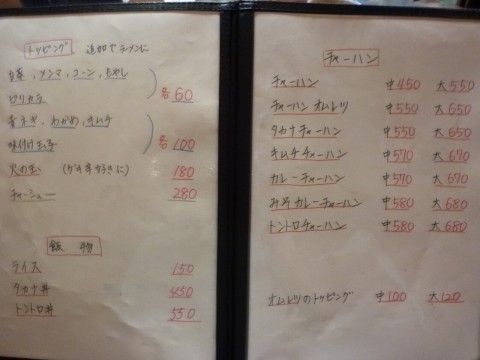 トッピング 追加でラーメンに
白菜、メンマ、コーン、もやし
ピリカラ 各60
青ネギ、わかめ、キムチ
味付け玉子 各100
火の玉 (ゲキ辛好きに) 180
チャーシュー 280
飯物
ライス 150
タカナ丼 450
トントロ丼 550
チャーハン
チャーハン 中450 大550
チャーハン オムレツ 中550 大650
タカナチャーハン 中550 大650
キムチチャーハン 中570 大670
カレーチャーハン 中570 大670
みそカレーチャーハン 中580 大680
トントロチャーハン 中580 大680
オムレツのトッピング 中100 大120